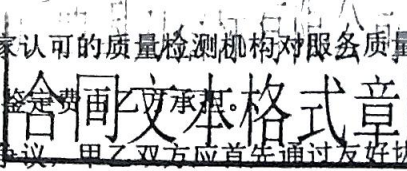 家认可的质量检测机构对服务质量
鉴定费由乙方承担。
合同文本格式章
争议，甲乙双方应首先通过友好协